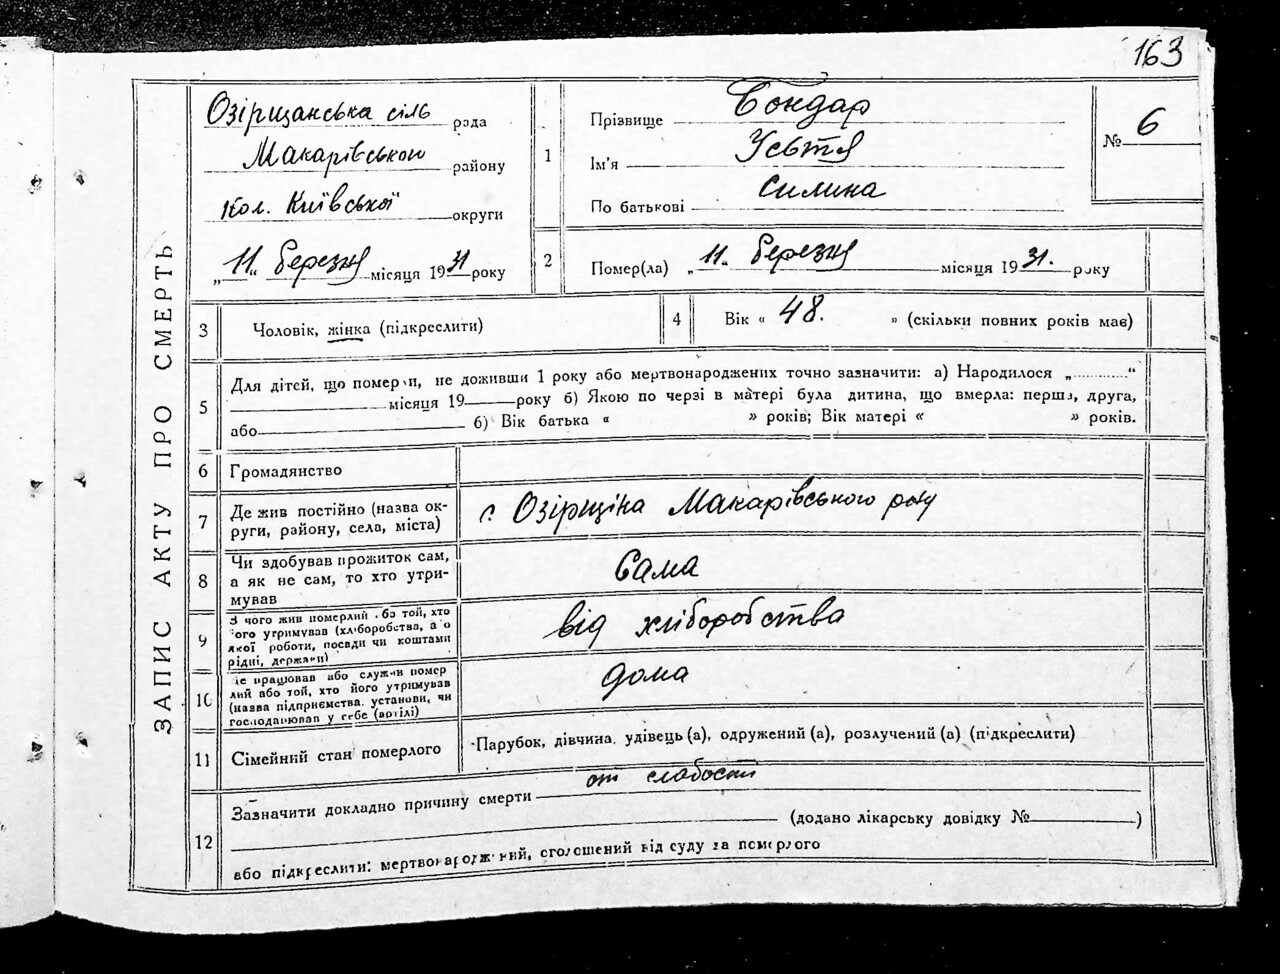 163
ЗАПИС АКТУ ПРО СМЕРТЬ
Озірщанська сіль рада
Макарівського району
кол. Київської округи
„11“ березня місяця 1931 року
1
Прізвище Бондар
Ім'я Устя
По батькові Силина
№ 6
2
Помер(ла) „11“ березня місяця 1931. року
3 Чоловік, жінка (підкреслити)
4 Вік « 48. » (скільки повних років мав)
5 Для дітей, що померли, не доживши 1 року або мертвонароджених точно зазначити: а) Народилося „............“
місяця 19 року б) Якою по черзі в матері була дитина, що вмерла: перша, друга,
або б) Вік батька « » років; Вік матері « » років.
6 Громадянство
7 Де жив постійно (назва ок-
руги, району, села, міста)
с. Озірщіна Макарівського р-ну
8 Чи здобував прожиток сам,
а як не сам, то хто утри-
мував
Сама
9 З чого жив померлий або той, хто
його утримував (хліборобства, або
якої роботи, посади чи коштами
рідні, держави)
від хліборобства
10 Де працював або служив помер
лий або той, хто його утримував
(назва підприємства, установи, чи
господарював у себе (артілі)
дома
11 Сімейний стан померлого
Парубок, дівчина, удівець (а), одружений (а), розлучений (а) (підкреслити)
12 Зазначити докладно причину смерти от слабости
(додано лікарську довідку № )
або підкреслити: мертвонароджений, оголошений від суду за померлого